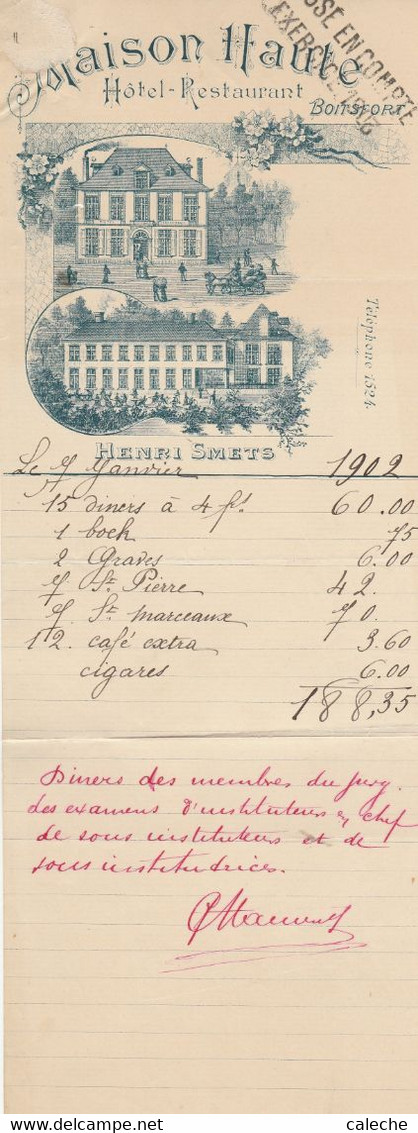 Maison Haute
Hôtel-Restaurant
Boitsfort
PASSÉ EN COMPTE
EXERCICE
Téléphone 1524
Henri Smets
Le 7 Janvier 1902
15 diners à 4 frs 60.00
1 bock 75
2 Graves 6.00
7 St. Pierre 42.
7 St. marceaux 70.
12. café extra 3.60
cigares 6.00
188,35
Diners des membres du jury
des examens d'instituteurs en chef
de sous instituteurs et de
sous institutrices.
delcampe.net
caleche